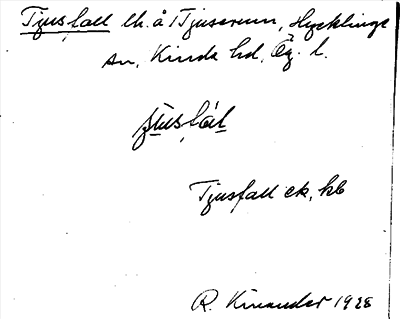 Tjusfall lh. å Tjuserum, Hycklinge
sn, Kinda hd, Ög. l.
Tjusfall ek, kb
R. Kinander 1928